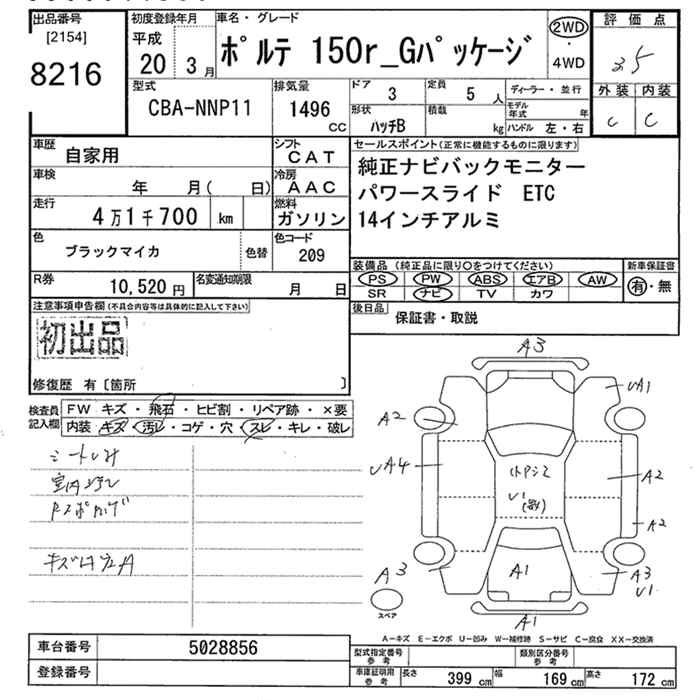 出品番号
[2154]
8216
初度登録年月
平成
20 3月
車名・グレード
ポルテ 150r_Gパッケージ
2WD
・
4WD
評価点
3.5
外装 内装
C C
型式
CBA-NNP11
排気量
1496
CC
ドア
3
定員
5 人
形状
ハッチB
積載
kg
ディーラー・並行
モデル年式 年
ハンドル 左・右
車歴
自家用
シフト
CAT
車検
年 月( 日)
冷房
AAC
走行
4万1千700 km
燃料
ガソリン
色
ブラックマイカ
色替
色コード
209
R券
10,520 円
名変通知期限
月 日
セールスポイント(正常に機能するものに限ります)
純正ナビバックモニター
パワースライド ETC
14インチアルミ
装備品 (純正品に限り○をつけてください)
PS PW ABS エアB AW
SR ナビ TV カワ
新車保証書
有・無
後日品
保証書・取説
注意事項申告欄(不具合内容等は具体的に記入して下さい)
初出品
修復歴 有〔箇所 〕
検査員記入欄
FW キズ・飛石・ヒビ割・リペア跡・×要
内装 キズ・汚レ・コゲ・穴・スレ・キレ・破レ
A3
UA1
A2
UA4
A2
A2
U1
A3
A1
A3
U1
A1
スペア
A-キズ E-エクボ U-凹み W-補修跡 S-サビ C-腐食 XX-交換済
車台番号
5028856
登録番号
型式指定番号
参考
類別区分番号
参考
車庫証明用
参考
長さ 399 cm 幅 169 cm 高さ 172 cm